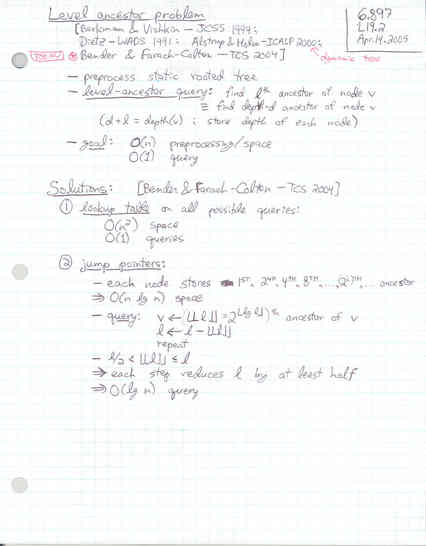 Level ancestor problem
6.897
L19.2
Apr. 14, 2005
[Berkman & Vishkin — JCSS 1994;
Dietz — WADS 1991; Alstrup & Holm — ICALP 2000;
dynamic trees
TODAY → Bender & Farach-Colton — TCS 2004]
— preprocess static rooted tree
— level-ancestor query: find lth ancestor of node v
≡ find depth-d ancestor of node v
(d+l = depth(v) ; store depth of each node)
— goal: O(n) preprocessing/space
O(1) query
Solutions: [Bender & Farach-Colton — TCS 2004]
① lookup table on all possible queries:
O(n²) space
O(1) queries
② jump pointers:
— each node stores 1ST, 2ND, 4TH, 8TH, ..., (2^i)TH, ... ancestor
⇒ O(n lg n) space
— query: v ← (⌊⌊l⌋⌋ = 2^⌊lg l⌋)th ancestor of v
l ← l − ⌊⌊l⌋⌋
repeat
— l/2 < ⌊⌊l⌋⌋ ≤ l
⇒ each step reduces l by at least half
⇒ O(lg n) query